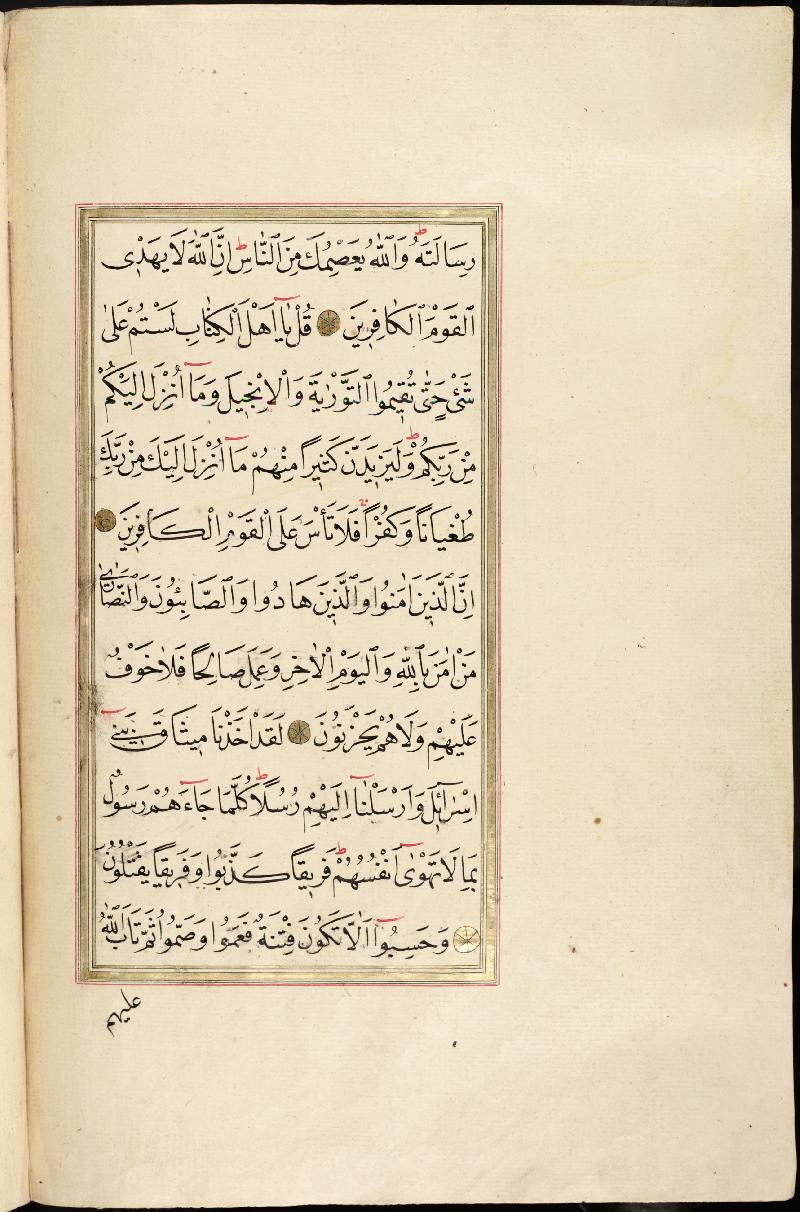 رِسَالَتَهُ ط وَاللّٰهُ يَعْصِمُكَ مِنَ النَّاسِ ط اِنَّ اللّٰهَ لَا يَهْدِى
الْقَوْمَ الْكَافِرِينَ قُلْ يَٓا اَهْلَ الْكِتَابِ لَسْتُمْ عَلٰى
شَىْءٍ حَتّٰى تُقِيمُوا التَّوْرٰيةَ وَالْاِنْجِيلَ وَمَٓا اُنْزِلَ اِلَيْكُمْ
مِنْ رَبِّكُمْ ط وَلَيَزِيدَنَّ كَثِيرًا مِنْهُمْ مَٓا اُنْزِلَ اِلَيْكَ مِنْ رَبِّكَ
طُغْيَانًا وَكُفْرًا ج فَلَا تَأْسَ عَلَى الْقَوْمِ الْكَافِرِينَ
اِنَّ الَّذِينَ اٰمَنُوا وَالَّذِينَ هَادُوا وَالصَّابِئُونَ وَالنَّصَارٰى
مَنْ اٰمَنَ بِاللّٰهِ وَالْيَوْمِ الْاٰخِرِ وَعَمِلَ صَالِحًا فَلَا خَوْفٌ
عَلَيْهِمْ وَلَا هُمْ يَحْزَنُونَ لَقَدْ اَخَذْنَا مِيثَاقَ بَنِٓى
اِسْرَٓائِلَ وَاَرْسَلْنَٓا اِلَيْهِمْ رُسُلًا ط كُلَّمَا جَٓاءَهُمْ رَسُولٌ
بِمَا لَا تَهْوٰٓى اَنْفُسُهُمْ ط فَرِيقًا كَذَّبُوا وَفَرِيقًا يَقْتُلُونَ
وَحَسِبُٓوا اَلَّا تَكُونَ فِتْنَةٌ فَعَمُوا وَصَمُّوا ثُمَّ تَابَ اللّٰهُ
عليهم